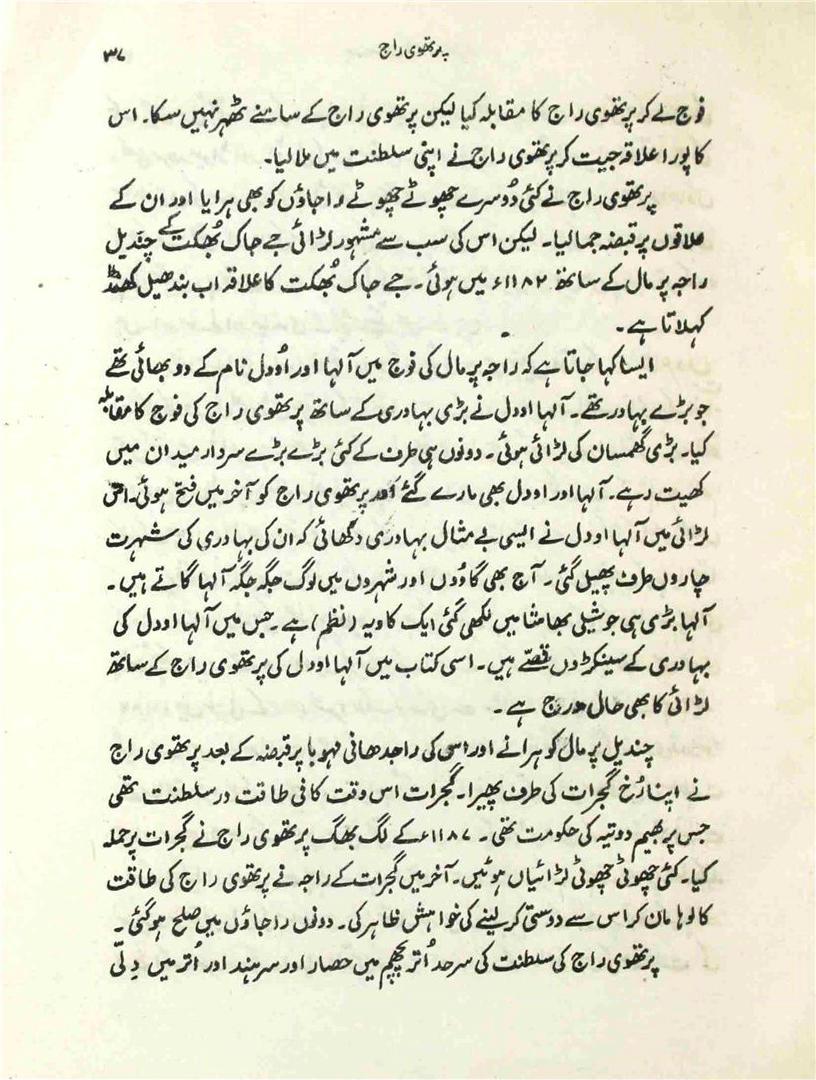 پرتھوی راج
۳۷
فوج لے کر پرتھوی راج کا مقابلہ کیا لیکن پرتھوی راج کے سامنے ٹھہر نہیں سکا۔ اس
کا پورا علاقہ جیت کر پرتھوی راج نے اپنی سلطنت میں ملا لیا۔
پرتھوی راج نے کئی دُوسرے چھوٹے چھوٹے راجاؤں کو بھی ہرایا اور ان کے
علاقوں پر قبضہ جما لیا۔ لیکن اس کی سب سے مشہور لڑائی جے جاک بُھکت کے چندیل
راجہ پر مال کے ساتھ ۱۱۸۲ء میں ہوئی۔ جے جاک بُھکت کا علاقہ اب بندھیل کھنڈ
کہلاتا ہے۔
ایسا کہا جاتا ہے کہ راجہ پر مال کی فوج میں آلہا اور اُودل نام کے دو بھائی تھے
جو بڑے بہادر تھے۔ آلہا اودل نے بڑی بہادری کے ساتھ پرتھوی راج کی فوج کا مقابلہ
کیا۔ بڑی گھمسان کی لڑائی ہوئی۔ دونوں ہی طرف کے کئی بڑے بڑے سردار میدان میں
کھیت رہے۔ آلہا اور اودل بھی مارے گئے اور پرتھوی راج کو آخر میں فتح ہوئی۔ اس
لڑائی میں آلہا اودل نے ایسی بے مثال بہادری دکھائی کہ ان کی بہادری کی شہرت
چاروں طرف پھیل گئی۔ آج بھی گاؤوں اور شہروں میں لوگ جگہ جگہ آلہا گاتے ہیں۔
آلہا بڑی ہی جوشیلی بھاشا میں لکھی گئی ایک کاویہ (نظم) ہے۔ جس میں آلہا اودل کی
بہادری کے سینکڑوں قصّے ہیں۔ اسی کتاب میں آلہا اودل کی پرتھوی راج کے ساتھ
لڑائی کا بھی حال درج ہے۔
چندیل پر مال کو ہرانے اور اسی کی راجدھانی مہوبا پر قبضہ کے بعد پرتھوی راج
نے اپنا رُخ گجرات کی طرف پھیرا۔ گجرات اس وقت کافی طاقت ور سلطنت تھی
جس پر بھیم دوتیہ کی حکومت تھی۔ ۱۱۸۷ء کے لگ بھگ پرتھوی راج نے گجرات پر حملہ
کیا۔ کئی چھوٹی چھوٹی لڑائیاں ہوئیں۔ آخر میں گجرات کے راجہ نے پرتھوی راج کی طاقت
کا لوہا مان کر اس سے دوستی کر لینے کی خواہش ظاہر کی۔ دونوں راجاؤں میں صلح ہو گئی۔
پرتھوی راج کی سلطنت کی سرحد اُتر پچھّم میں حصار اور سرہند اور اُتر میں دِلّی